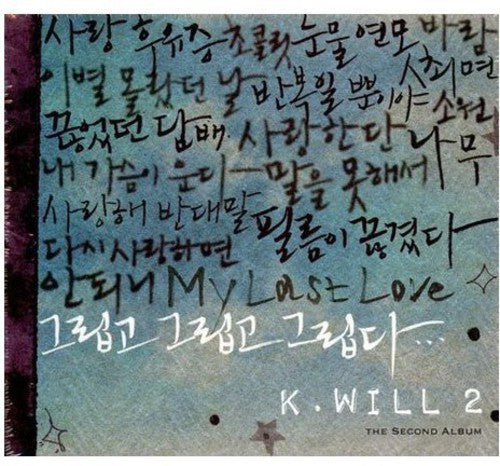 사랑 후유증 초콜릿 눈물 연모 바람
이별 몰랐던 날 반복일 뿐이야 시최면
끊었던 담배 사랑한단 소원
내 가슴이 운다 말을 못해서 나무
사랑해 반대말 필름이 끊겼다
다시 사랑하면
안되니 My Last Love
그립고 그립고 그립다...
K.WILL 2
THE SECOND ALBUM